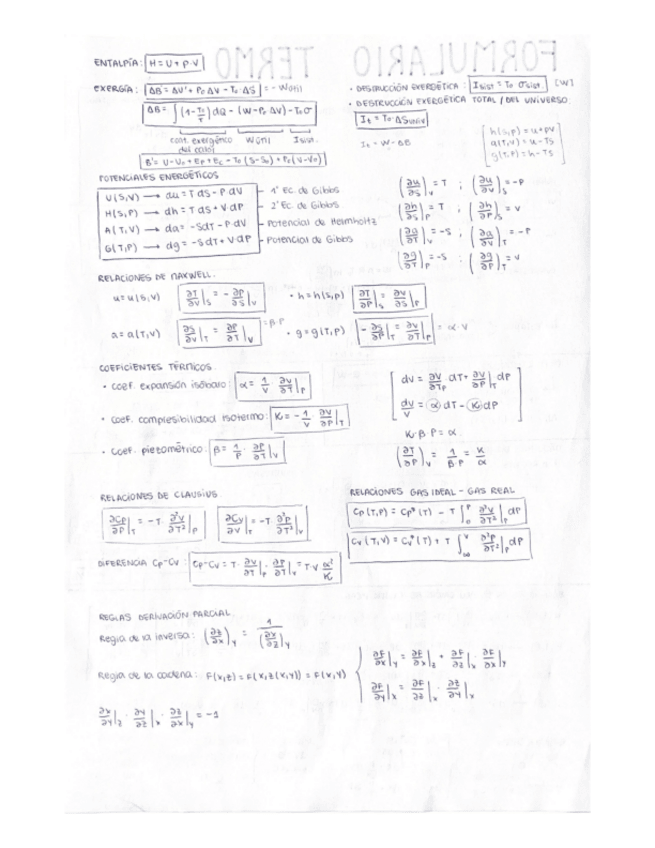 FORMULARIO TERMO
ENTALPÍA: H = U + P·V
EXERGÍA: ΔB = ΔU' + P₀ ΔV - T₀·ΔS = - Wútil
ΔB = ∫ (1 - T₀/T) dQ - (W - P₀ ΔV) - T₀σ
cont. exergético del calor
Wútil
Isist.
B' = U - U₀ + Ep + Ec - T₀ (S - S₀) + P₀ (V - V₀)
• DESTRUCCIÓN EXERGÉTICA: Isist = T₀ σsist. [W]
• DESTRUCCIÓN EXERGÉTICA TOTAL / DEL UNIVERSO:
It = T₀·ΔSuniv
It = W - ΔB
h(s,p) = u + pv
a(T,v) = u - Ts
g(T,p) = h - Ts
POTENCIALES ENERGÉTICOS
U(S,V) → du = T dS - P·dV - 1ª Ec. de Gibbs
H(S,P) → dh = T dS + V·dP - 2ª Ec. de Gibbs
A(T,V) → da = -SdT - P·dV - Potencial de Helmholtz
G(T,P) → dg = -SdT + V·dP - Potencial de Gibbs
(∂u/∂S)V = T ; (∂u/∂V)S = -P
(∂h/∂S)P = T ; (∂h/∂P)S = V
(∂a/∂T)V = -S ; (∂a/∂V)T = -P
(∂g/∂T)P = -S ; (∂g/∂P)T = V
RELACIONES DE MAXWELL.
u = u(s,v) ∂T/∂V|S = - ∂P/∂S|V • h = h(s,p) ∂T/∂P|S = ∂V/∂S|P
a = a(T,V) ∂S/∂V|T = ∂P/∂T|V = β·P • g = g(T,P) -∂S/∂P|T = ∂V/∂T|P = α·V
COEFICIENTES TÉRMICOS
• coef. expansión isóbaro: α = 1/V · ∂V/∂T|P
• coef. compresibilidad isotermo: K = - 1/V · ∂V/∂P|T
• coef. piezométrico: β = 1/P · ∂P/∂T|V
dV = ∂V/∂T|P dT + ∂V/∂P|T dP
dV/V = α dT - K dP
K·β·P = α
(∂T/∂P)V = 1/β·P = K/α
RELACIONES DE CLAUSIUS.
∂Cp/∂P|T = -T · ∂²V/∂T²|P ∂Cv/∂V|T = -T · ∂²P/∂T²|V
DIFERENCIA Cp-Cv: Cp - Cv = T · ∂V/∂T|P · ∂P/∂T|V = T·V α²/K
RELACIONES GAS IDEAL - GAS REAL
Cp(T,P) = Cp*(T) - T ∫₀ᴾ ∂²V/∂T²|P dP
Cv(T,V) = Cv*(T) + T ∫∞ⱽ ∂²P/∂T²|P dP
REGLAS DERIVACIÓN PARCIAL
Regla de la inversa: (∂z/∂x)y = 1/(∂x/∂z)y
Regla de la cadena: F(x,z) = F(x,z(x,y)) = F(x,y)
∂F/∂x|y = ∂F/∂x|z + ∂F/∂z|x · ∂z/∂x|y
∂F/∂y|x = ∂F/∂z|x · ∂z/∂y|x
∂x/∂y|z · ∂y/∂z|x · ∂z/∂x|y = -1